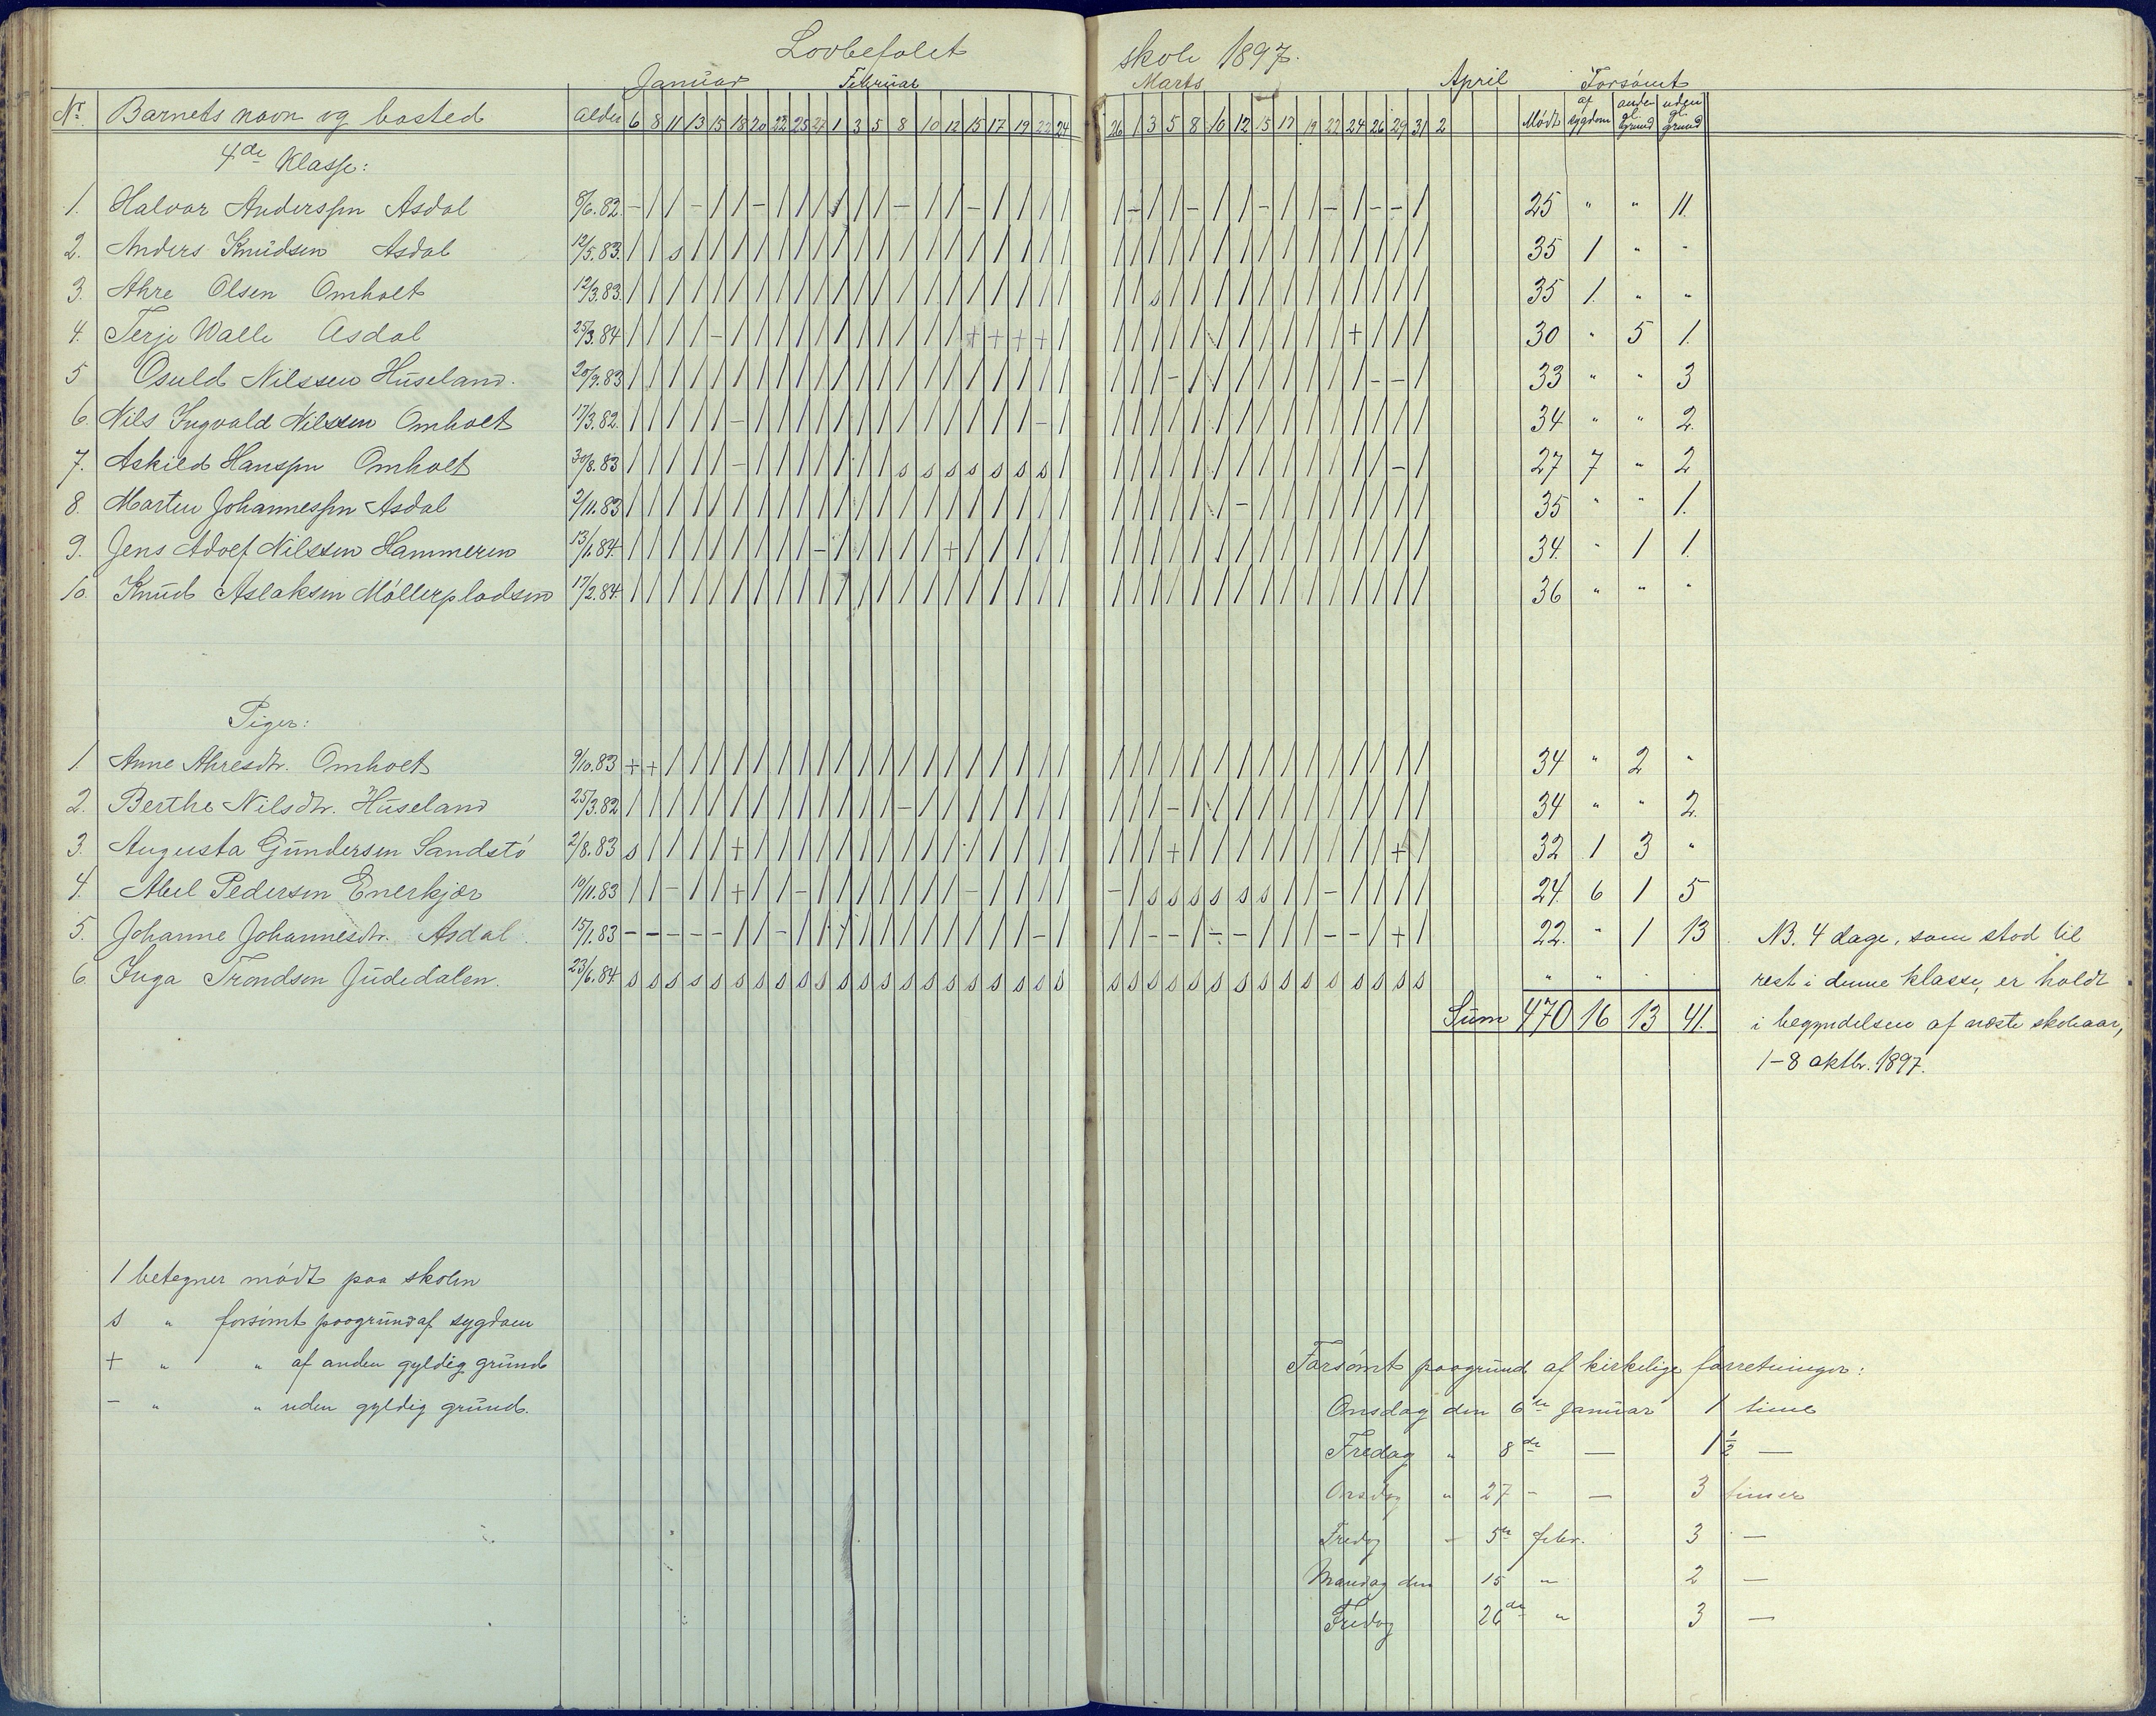 Lovbefalet skole 1897.
Januar Februar Marts April Forsømt
Nr. Barnets navn og bosted Alder 6 8 11 13 15 18 20 22 25 27 1 3 5 8 10 12 15 17 19 22 24 26 1 3 5 8 10 12 15 17 19 22 24 26 29 31 2 Mødt af sygdom anden gl. grund uden gl. grund
4de Klasse:
1. Halvor Anderssen Asdal 8/6.82. - / / - / / - / / / / / / - / / - / / / / / - / / - / / - / / - / - - / 25 " " 11.
2. Anders Knudsen Asdal 12/5.83. / / s / / / / / / / / / / / / / / / / / / / / / / / / / / / / / / / / / 35 1 " -
3. Ahre Olsen Omholt 12/3.83. / / / / / / / / / / / / / / / / / / / / / / / s / / / / / / / / / / / / 35 1. " "
4. Terje Walle Asdal 25/3.84 / / / / - / / / / / / / / / / / + + + + / / / / / / / / / / / / + / / / 30 " 5 1.
5 Osuld Nilssen Huseland. 20/9.83 / / / / / / / / / / / / / / / / / / / / / / / / - / / / / / / / / - - / 33 " " 3
6. Nils Ingvald Nilssen Omholt 17/3.82. / / / / / - / / / / / / / / / / / / / - / / / / / / / / / / / / / / / / 34 " " 2.
7. Askild Hanssen Omholt 30/8.83 / / / / / - / / / / / / / s s s s s s s / / / / / / / / / / / / / / - / 27 7 " 2
8. Marten Johannessen Asdal 2/11.83 / / / / / / / / / / / / / / / / / / / / / / / / / / / - / / / / / / / / 35 " " 1.
9. Jens Adolf Nilssen Hammeren 13/1.84. / / / / / / / / / - / / / / / + / / / / / / / / / / / / / / / / / / / / 34. " 1 1.
10. Knud Aslaksen Møllerpladsen 17/2.84. / / / / / / / / / / / / / / / / / / / / / / / / / / / / / / / / / / / / 36 " " "
Piger:
1. Anne Ahresdtr. Omholt 9/10.83 + + / / / / / / / / / / / / / / / / / / / / / / / / / / / / / / / / / / 34 " 2 "
2. Berthe Nilsdtr. Huseland 25/3.82 / / / / / / / / / / / / / - / / / / / / / / / / - / / / / / / / / / / / 34 " " 2.
3. Augusta Gundersen Sandstö 2/8.83 s / / / / + / / / / / / / / / / / / / / / / / / + / / / / / / / / / + / 32 1 3 "
4. Abel Pedersen Enerkjær 10/11.83 / / - / / + / / - / / / / / / / - / / / / - / s s s s s s / / - / / / / 24. 6 1 5
5. Johanne Johannesdtr. Asdal. 15/1.83 - - - - - / / - / / / / / / / / / / / - / / / - - / - - / / - - / + / 22. " 1 13
6. Inga Trondsen Judedalen. 23/6.84. s s s s s s s s s s s s s s s s s s s s s s s s s s s s s s s s s s s s " " . .
Sum 470 16 13 41.
NB. 4 dage, som stod til
rest i denne klasse, er holdt
i begyndelsen af næste skoleaar,
1-8 oktbr. 1897.
/ betegner mødt paa skolen
s " forsømt paagrund af sygdom
+ " " af anden gyldig grund
- " " uden gyldig grund.
Forsømt paagrund af kirkelige forretninger:
Onsdag den 6te Januar 1 time
Fredag " 8de — 1½ —
Onsdag " 27 - — 3 timer
Fredag - 5te febr. 3 —
Mandag den 15 " 2 —
Fredag 26de " 3 —